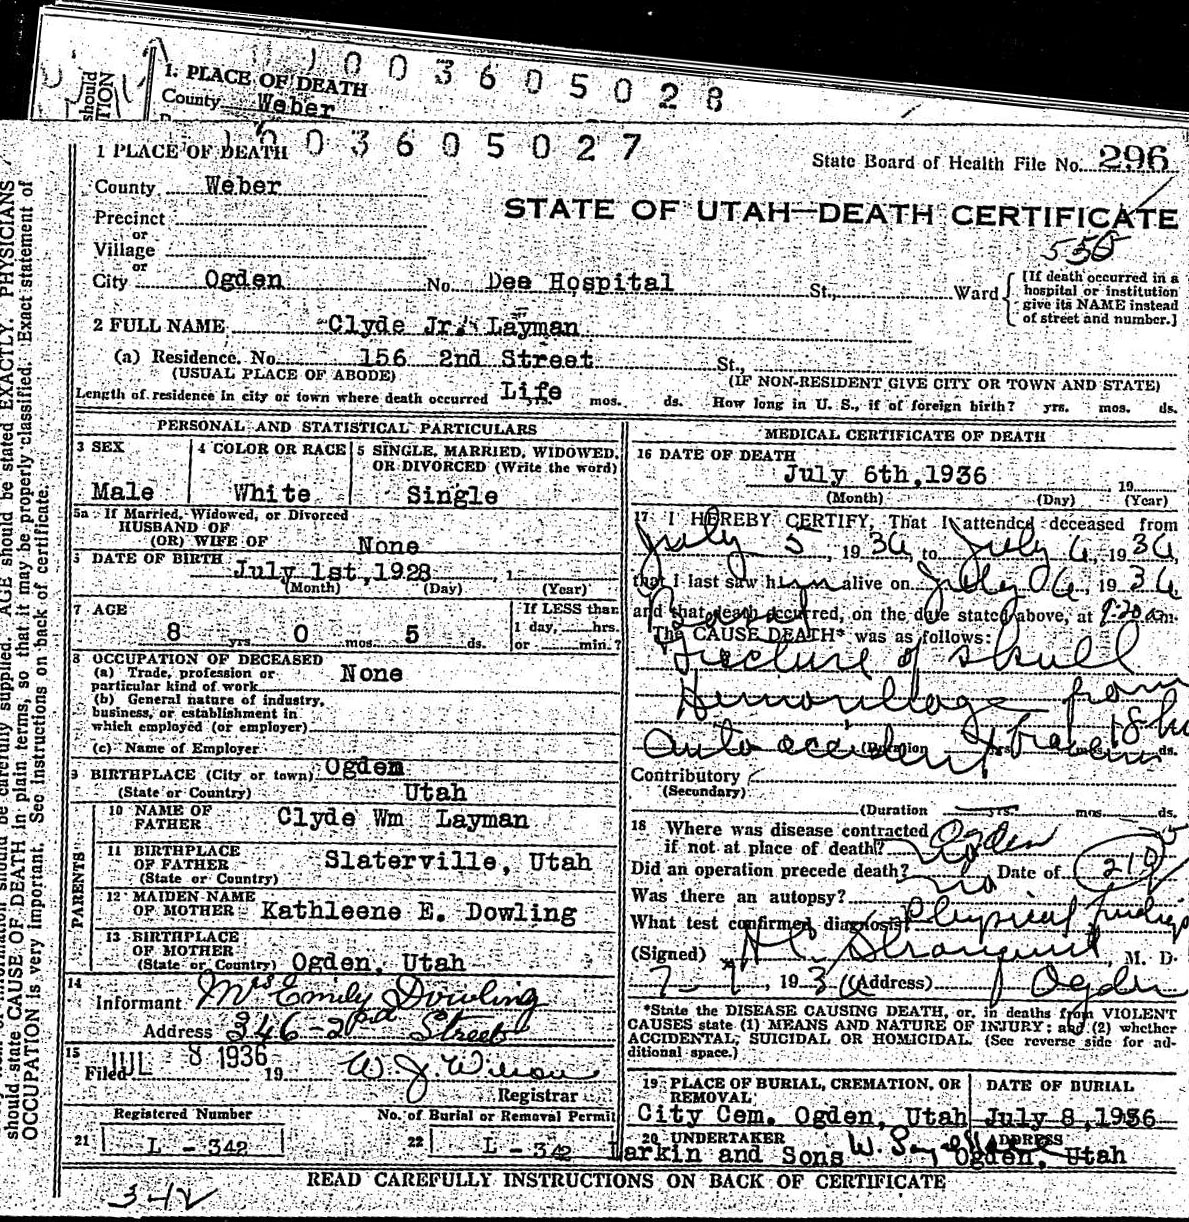 1. PLACE OF DEATH
1003605028
County Weber
1003605027
1 PLACE OF DEATH
State Board of Health File No. 296
County Weber
STATE OF UTAH—DEATH CERTIFICATE
Precinct
or
Village
or
City Ogden No. Dee Hospital St., Ward
[If death occurred in a
hospital or institution
give its NAME instead
of street and number.]
2 FULL NAME Clyde Jr. Layman
(a) Residence. No. 156 2nd Street St.,
(USUAL PLACE OF ABODE) (IF NON-RESIDENT GIVE CITY OR TOWN AND STATE)
Length of residence in city or town where death occurred Life yrs. mos. ds. How long in U. S., if of foreign birth? yrs. mos. ds.
PERSONAL AND STATISTICAL PARTICULARS
3 SEX
Male
4 COLOR OR RACE
White
5 SINGLE, MARRIED, WIDOWED,
OR DIVORCED (Write the word)
Single
5a If Married, Widowed, or Divorced
HUSBAND OF
(OR) WIFE OF None
DATE OF BIRTH July 1st, 1928, 1
(Month) (Day) (Year)
7 AGE
8 yrs. 0 mos. 5 ds.
If LESS than
1 day, hrs.
or min.?
8 OCCUPATION OF DECEASED
(a) Trade, profession or
particular kind of work None
(b) General nature of industry,
business, or establishment in
which employed (or employer)
(c) Name of Employer
9 BIRTHPLACE (City or town) Ogden
(State or Country) Utah
PARENTS
10 NAME OF
FATHER Clyde Wm Layman
11 BIRTHPLACE
OF FATHER Slaterville, Utah
(State or Country)
12 MAIDEN NAME
OF MOTHER Kathleene E. Dowling
13 BIRTHPLACE
OF MOTHER
(State or Country) Ogden, Utah
14
Informant Mrs Emily Dowling
Address 346-2nd Street
15
Filed JUL 8 1936 19
Registrar
Registered Number
21 L - 342
No. of Burial or Removal Permit
22 L - 342
MEDICAL CERTIFICATE OF DEATH
16 DATE OF DEATH
July 6th, 1936, 19
(Month) (Day) (Year)
17 I HEREBY CERTIFY, That I attended deceased from
July 5, 1936, to July 6, 1936
that I last saw him alive on July 6, 1936
and that death occurred, on the date stated above, at 9:20 am.
The CAUSE DEATH* was as follows:
Basal
Fracture of skull
Hemorrhage from
auto accident
18 hr
(Duration yrs. mos. ds.
Contributory
(Secondary)
(Duration yrs. mos. ds.
18 Where was disease contracted
if not at place of death? Ogden
Did an operation precede death? No Date of
210
Was there an autopsy? no
What test confirmed diagnosis? Physical findings
(Signed) M. D.
7-7, 1936 (Address) Ogden
*State the DISEASE CAUSING DEATH, or, in deaths from VIOLENT
CAUSES state (1) MEANS AND NATURE OF INJURY; and (2) whether
ACCIDENTAL, SUICIDAL OR HOMICIDAL. (See reverse side for ad-
ditional space.)
19 PLACE OF BURIAL, CREMATION, OR
REMOVAL
City Cem. Ogden, Utah
DATE OF BURIAL
July 8, 1936
20 UNDERTAKER
Larkin and Sons
ADDRESS
Ogden, Utah
READ CAREFULLY INSTRUCTIONS ON BACK OF CERTIFICATE
342